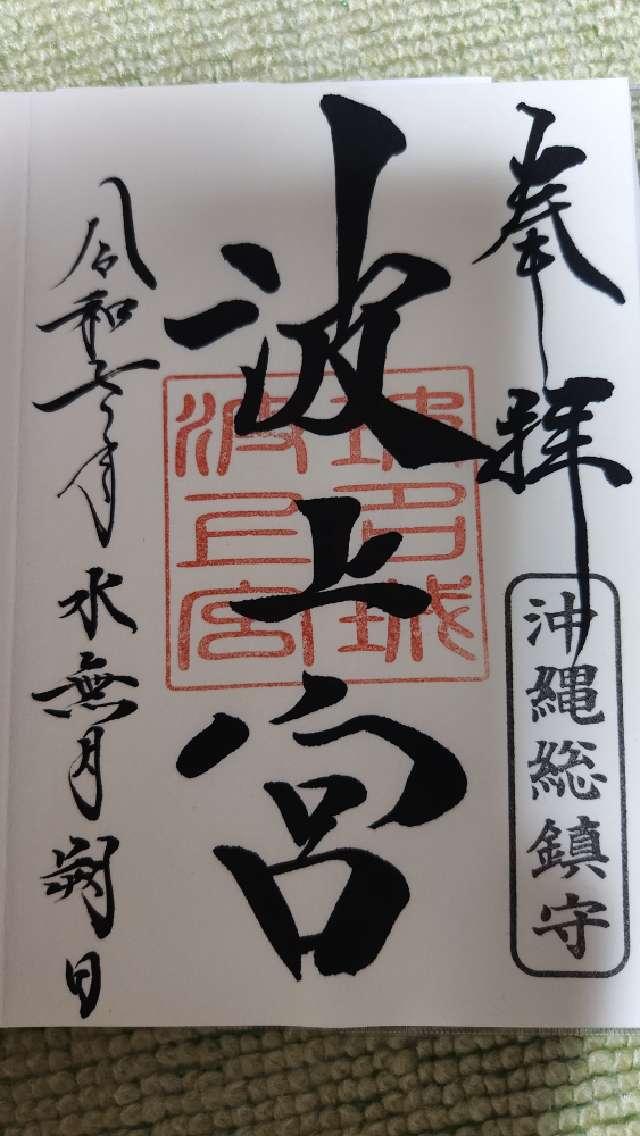 奉拝
沖縄総鎮守
波上宮
波上宮
令和七年水無月朔日